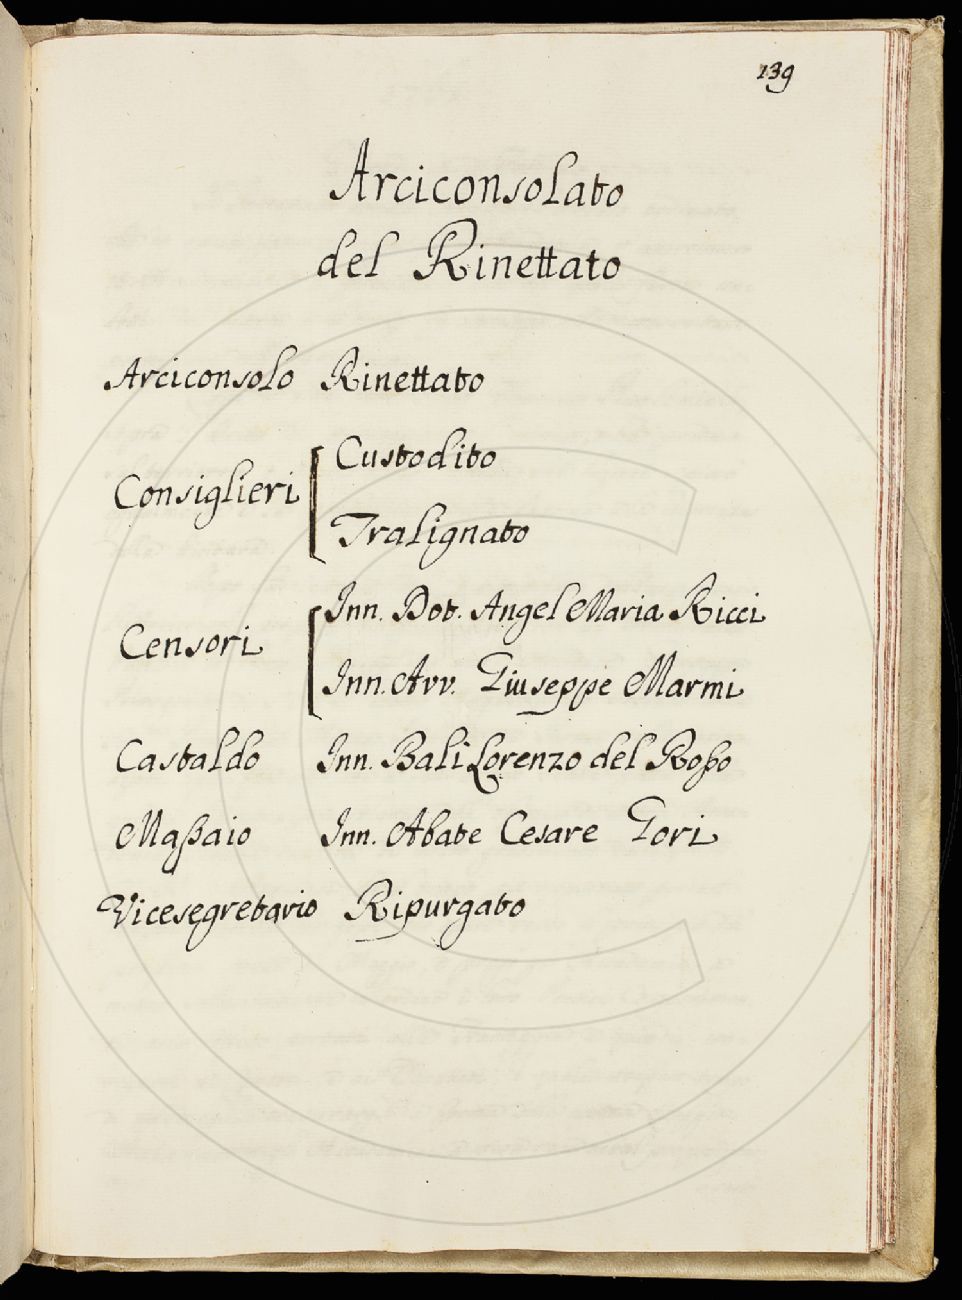 139
Arciconsolato
del Rinettato
Arciconsolo Rinettato
Consiglieri Custodito
Tralignato
Censori Inn. Dot. Angel Maria Ricci
Inn. Avv. Giuseppe Marmi
Castaldo Inn. Balì Lorenzo del Rosso
Massaio Inn. Abate Cesare Gori
Vicesegretario Ripurgato